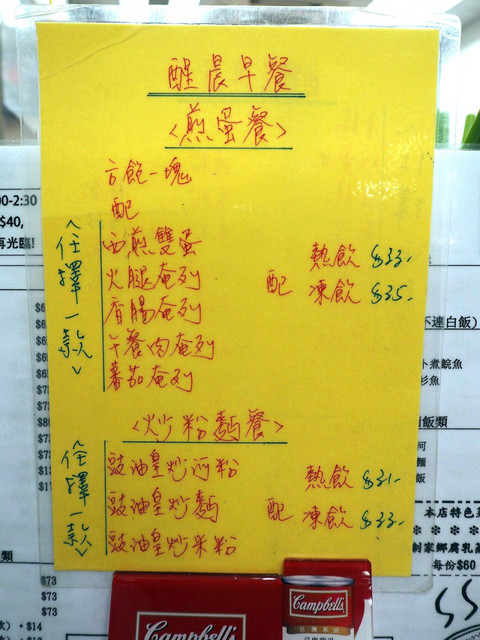 醒晨早餐
<煎蛋餐>
方飽一塊
配
<任擇一款>
西煎雙蛋
火腿奄列
香腸奄列
午餐肉奄列
蕃茄奄列
配
熱飲 $33-
凍飲 $35-
<炒粉麵餐>
<任擇一款>
豉油皇炒河粉
豉油皇炒麵
豉油皇炒米粉
配
熱飲 $31-
凍飲 $33-
00-2:30
$40,
再光臨!
不連白飯)
卜煮鯇魚
飯類
本店特色
* * * *
制家鄉腐乳
每份$60
$73
$73
$73
+ $14
Campbell's
Campbell's